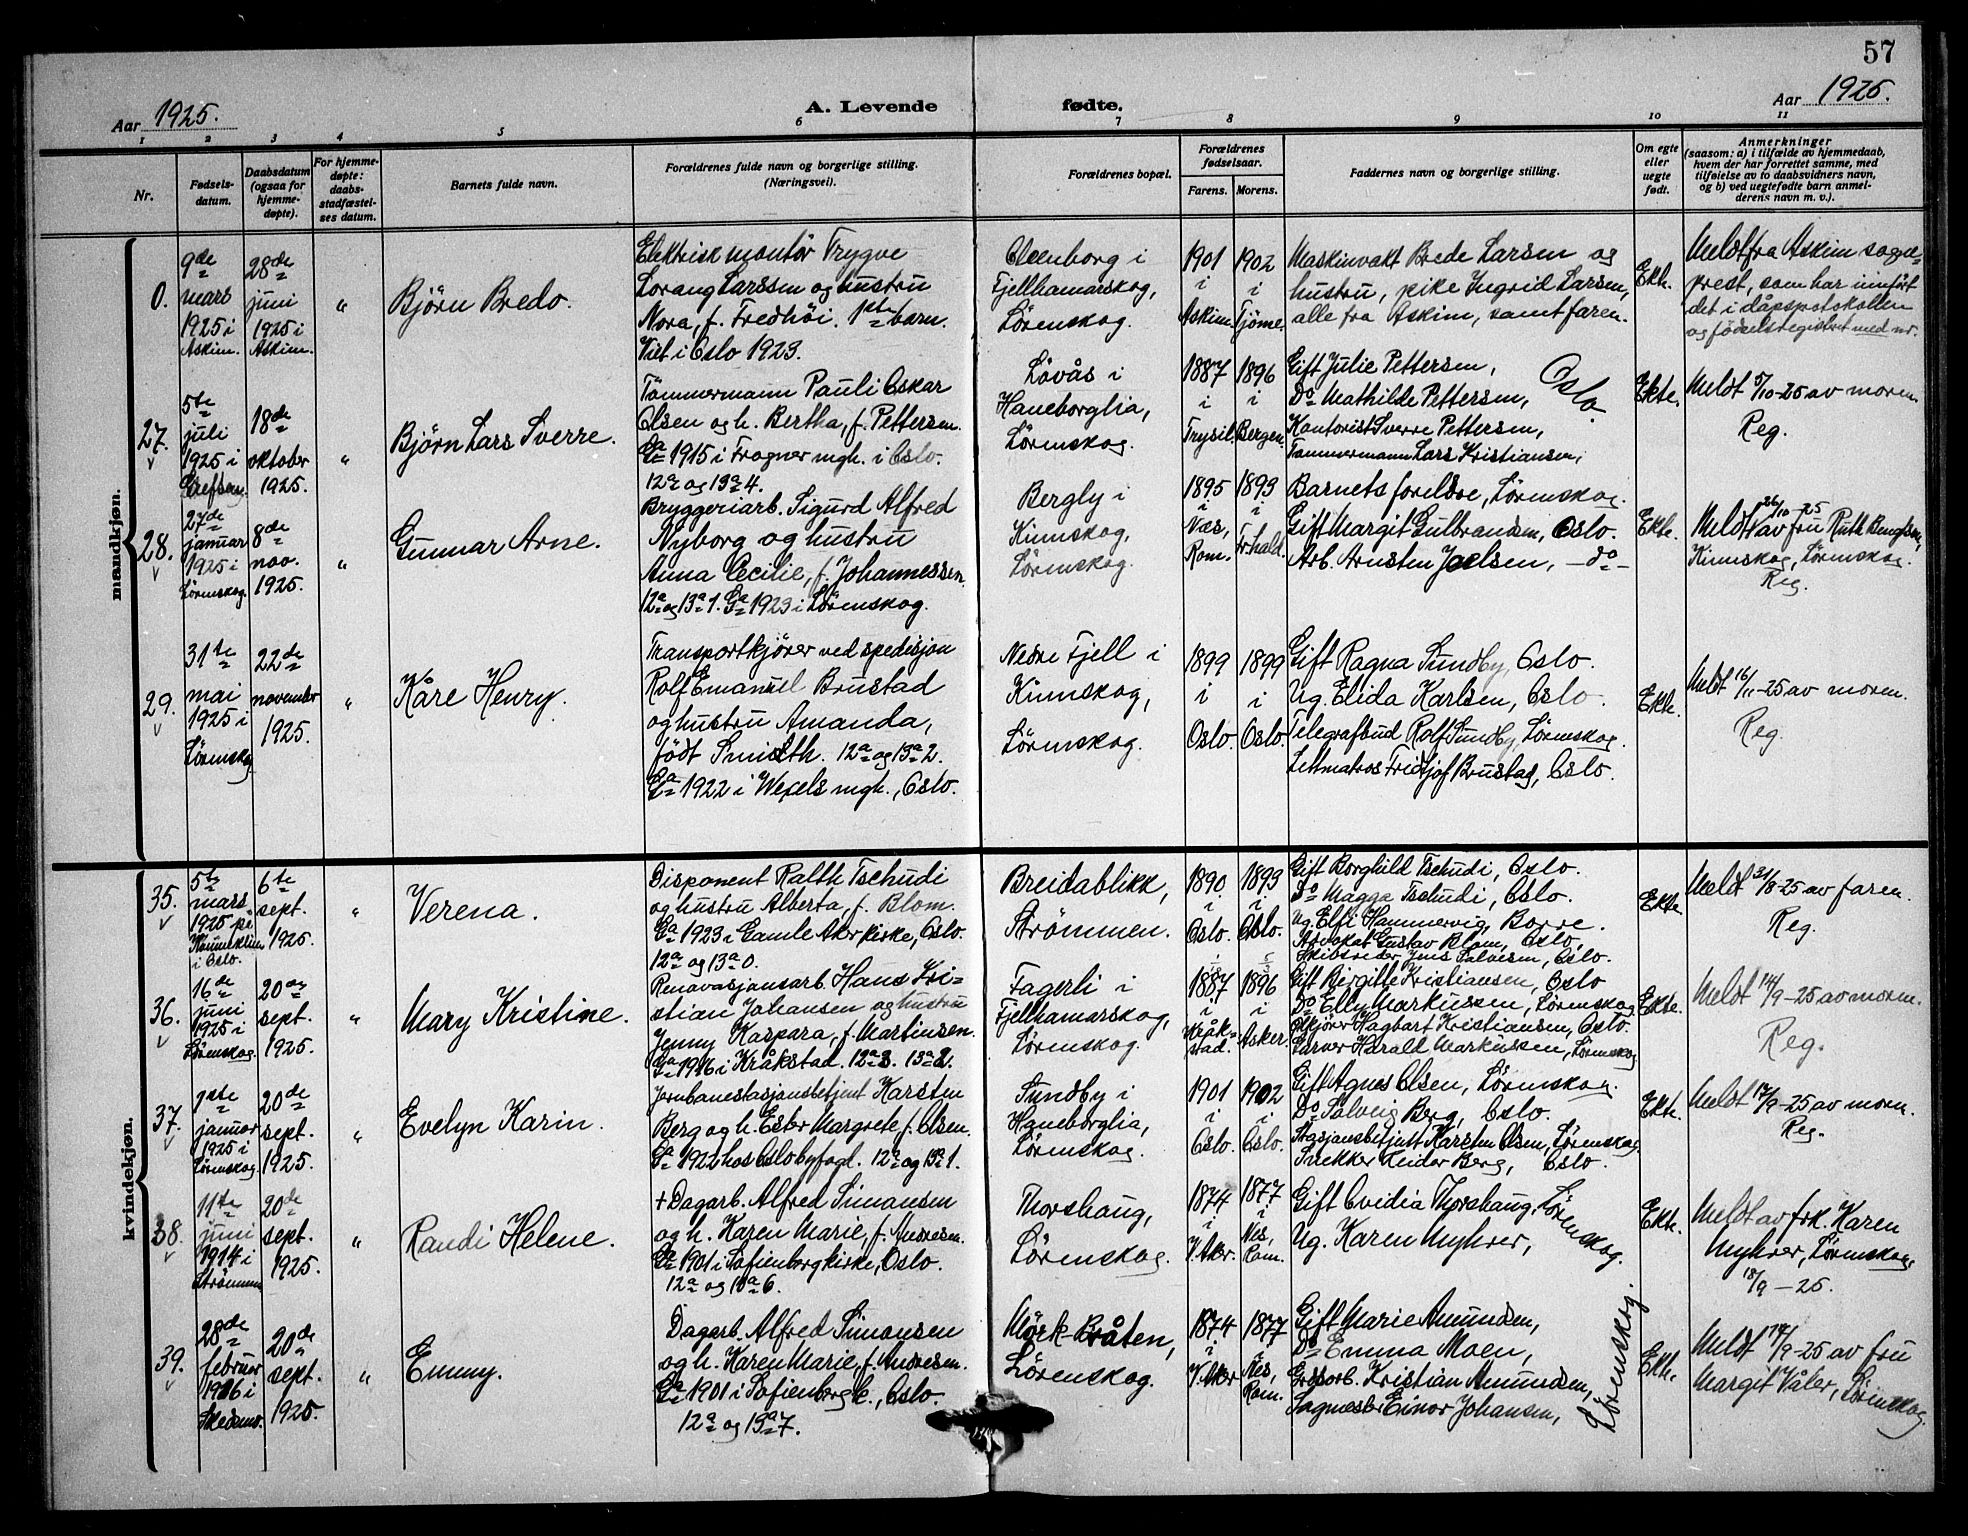 57
Aar 1925.
A. Levende fødte.
Aar 1925.
1 2 3 4 5 6 7 8 9 10 11
Nr.
Fødsels-
datum.
Daabsdatum
(ogsaa for
hjemme-
døpte).
For hjemme-
døpte:
daabs-
stadfæstel-
ses datum.
Barnets fulde navn.
Forældrenes fulde navn og borgerlige stilling.
(Næringsvei).
Forældrenes bopæl.
Forældrenes
fødselsaar.
Farens. Morens.
Faddernes navn og borgerlige stilling.
Om egte
eller
uegte
født.
Anmerkninger
(saasom: a) i tilfælde av hjemmedaab,
hvem der har forrettet samme, med
tilføielse av to daabsvidners navn,
og b) ved uegtefødte barn anmel-
derens navn m. v.).
mandkjøn.
0.
9de
mars
1925 i
Askim.
28de
juni
1925 i
Askim.
"
Björn Bredo.
Elektrisk montör Trygve
Lorang Larssen og hustru
Nora, f. Fredhöi. 1ste barn.
Viet i Oslo 1923.
Fjellhamarskog,
Lörenskog.
1901
i
Askim.
1902
i
Tjöme.
Maskinvakt Brede Larsen og
hustru, pike Ingrid Larsen,
alle fra Askim, samt faren.
Ekte.
Meldt fra Askim sogne-
prest, som har innfört
det i dåpsprotokollen
og födselsregistret med nr.
27.
5te
juli
1925 i
Grefsen.
18de
oktober
1925.
"
Björn Lars Sverre.
Tömmermann Pauli Oskar
Olsen og h. Bertha, f. Pettersen.
Ga 1915 i Frogner mgh. i Oslo.
12a og 13a 4.
Lövås i
Haneborglia,
Lörenskog.
1887
i
Trysil.
1896
i
Bergen.
Gift Julie Pettersen,
Do Mathilde Pettersen,
Oslo.
Kontorist Sverre Pettersen,
Tömmermann Lars Kristiansen,
Ekte.
Meldt 5/10-25 av moren.
Reg.
28.
27de
januar
1925 i
Lörenskog.
8de
nov.
1925.
"
Gunnar Arne.
Bryggeriarb. Sigurd Alfred
Nyborg og hustru
Anna Cecilie, f. Johannessen.
12a og 13a 1. Ga 1923 i Lörenskog.
Bergly i
Kinnskog,
Lörenskog.
1895
i
Næs,
Rom.
1893
i
Fr.hald.
Barnets foreldre, Lörenskog.
Gift Margit Gulbrandsen, Oslo.
Arb. Arnsten Joelsen, -do-
Ekte.
Meldt 26/10-25
av fru Ruth Bengtsen,
Kinnskog, Lörenskog.
Reg.
29.
31te
mai
1925 i
Lörenskog
22de
november
1925.
"
Kåre Henry.
Transportkjörer ved spedisjon
Rolf Emanuel Brustad
og hustru Amanda,
född Smidth. 12a og 13a 2.
Ga 1922 i Wexels mgh., Oslo.
Nedre Fjell i
Kinnskog,
Lörenskog.
1899
i
Oslo.
1899
i
Oslo.
Gift Ragna Sundby, Oslo.
Ug. Elida Karlsen, Oslo.
Telegrafbud Rolf Sundby, Lörenskog.
Lettmatros Fridtjof Brustad, Oslo.
Ekte.
Meldt 16/11-25 av moren.
Reg.
kvindekjøn.
35.
5te
mars
1925 på
i Oslo.
6te
sept.
1925.
"
Verena.
Disponent Ralth Tschudi
og hustru Alberta, f. Blom.
Ga 1923 i Gamle Aker kirke, Oslo.
12a og 13a 0.
Breidablikk,
Strömmen.
1890
i
Oslo.
1893
i
Oslo.
Gift Borghild Tschudi, Oslo.
Do Magga Tschudi, Oslo.
Ug. Elfi Hammervig, Borre.
Advokat Gustav Blom, Oslo,
Skibsreder Jens Salvesen, Oslo.
Ekte.
Meldt 31/8-25 av faren.
Reg.
36.
16de
juni
1925 i
Lörenskog.
20de
sept.
1925.
"
Mary Kristine.
Renovasjonsarb. Hans Kri-
stian Johansen og hustru
Jenny Kaspara, f. Martinsen.
Ga 1916 i Kråkstad. 12a 3. 13a 2.
Fagerli i
Fjellhamarskog,
Lörenskog.
1887
i
Kråk-
stad.
1896
i
Asker.
Gift Birgitte Kristiansen, Oslo
Do Elly Markussen, Lörenskog.
Hagbart Kristiansen, Oslo.
Garver Harald Markussen, Lörenskog
Ekte.
Meldt 14/9-25 av moren.
Reg.
37.
1ste
januar
1925 i
Lörenskog
20de
sept.
1925.
"
Evelyn Karin.
Jernbanestasjonsbetjent Karsten
Berg og h. Ester Margrete, f. Olsen.
Ga 1922 hos Oslo byfogd. 12a og 13a 1.
Sundby i
Haneborglia,
Lörenskog.
1901
i
Oslo.
1902
i
Oslo.
Gift Agnes Olsen, Lörenskog.
Do Solveig Berg, Oslo.
Stasjonsbetjent Karsten Olsen, Lörenskog
Snekker Reidar Berg, Oslo.
Ekte.
Meldt 17/9-25 av moren.
Reg.
38.
11te
juni
1914 i
Strömmen
20de
sept.
1925.
"
Randi Helene.
+ Dagarb. Alfred Simonsen
og h. Karen Marie, f. Andresen.
Ga 1901 i Sofienberg kirke, Oslo.
12a og 13a 6.
Thorshaug,
Lörenskog.
1874
i
V. Aker.
1877
i
Nes,
Rom.
Gift Ovidia Thorshaug,
Ug. Karen Myhrer,
Lörenskog.
Ekte.
Meldt av frk. Karen
Myhrer, Lörenskog,
18/9-25.
39.
28de
februar
1916 i
Skedsmo.
20de
sept.
1925.
"
Emmy.
Dagarb. Alfred Simonsen
og h. Karen Marie, f. Andresen.
Ga 1901 i Sofienberg k., Oslo.
12a og 13a 7.
Mörk-Bråten,
Lörenskog.
1874
i
V. Aker
1877
i
Nes,
Rom.
Gift Marie Amundsen,
Do Emma Moen,
Kristian Amundsen,
Einar Johansen,
Lörenskog.
Ekte.
Meldt 19/9-25 av fru
Margit Våler, Lörenskog.